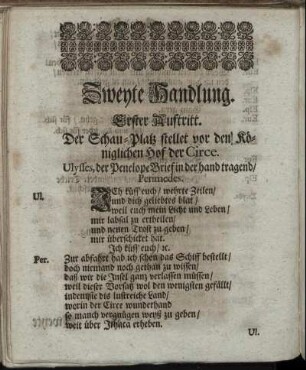 Zweyte Handlung.
Erster Auftritt.
Der Schau-Platz stellet vor den Kö-
niglichen Hof der Circe.
Ulysses, der Penelope Brief in der hand tragend/
Permedes.
Ul. ICh küss' euch/ wehrte Zeilen/
und dich geliebtes blat/
weil euch mein Liebe und Leben/
mir labsal zu ertheilen/
und neuen Trost zu geben/
mir überschicket hat.
Ich küss' euch/ ꝛc.
Per. Zur abfahrt hab ich schon das Schiff bestellt/
doch niemand noch gethan zu wissen/
daß wir die Insel ganz verlassen müssen/
weil dieser Vorsatz wol den wenigsten gefällt/
indem sie dis lustreiche Land/
worin der Circe wunderhand
so manch vergnügen weyß zu geben/
weit über Ithaca erheben.
Ul.